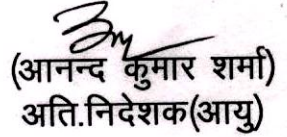 (आनन्द कुमार शर्मा)
अति.निदेशक(आयु)